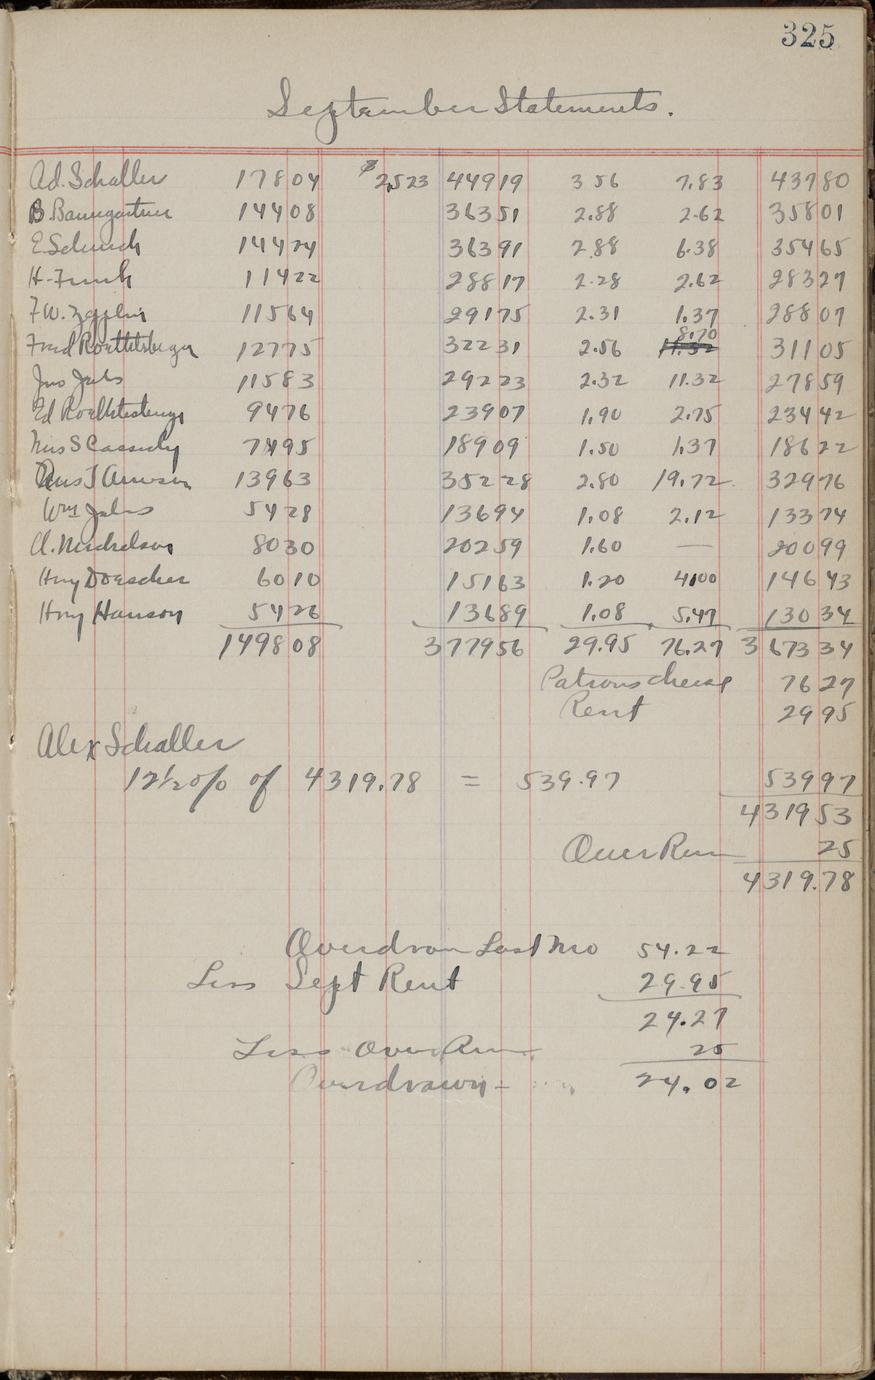 325
September Statements.
Ad. Schaller 17804 $2,523 44919 3 56 7.83 43780
B. Baumgartner 14408 36351 2.88 2.62 35801
E. Schuch 14424 36391 2.88 6.38 35465
H. Funk 11422 28817 2.28 2.62 28327
F.W. 11564 29175 2.31 1.37 28807
8.70
Fred Roethlisberger 12775 32231 2.56 11.32 31105
Jno Jahs 11583 29223 2.32 11.32 27859
Ed Roethlisberger 9476 23907 1.90 2.75 23442
Mrs S Cassidy 7495 18909 1.50 1.37 18622
13963 35228 2.80 19.72 32976
Wm Jahs 5428 13694 1.08 2.12 13374
A. Michelson 8030 20259 1.60 — 20099
Hny Doescher 6010 15163 1.20 4.00 14643
Hny Hanson 5426 13689 1.08 5.47 13034
149808 377956 29.95 76.27 367334
Patrons cheese 7627
Rent 2995
Alex Schaller
12½ o/o of 4319.78 = 539.97 53997
431953
Over Run 25
4319.78
Overdrawn Last Mo 54.22
Less Sept Rent 29.95
24.27
Less Over Run 25
Overdrawn - 24.02